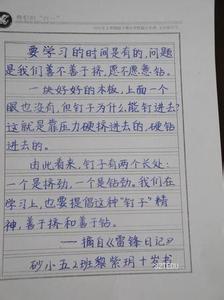 要学习的时间是有的,问题
是我们善不善于挤,愿不愿意钻。
一块好好的木板,上面一个
眼也没有,但钉子为什么能钉进去?
这就是靠压力硬挤进去的,硬钻
进去的。
由此看来,钉子有两个长处:
一个是挤劲,一个是钻劲。我们在
学习上,也要提倡这种“钉子”精
神,善于挤和善于钻。
——摘自《雷锋日记》
砂小五2班黎紫玥十岁书